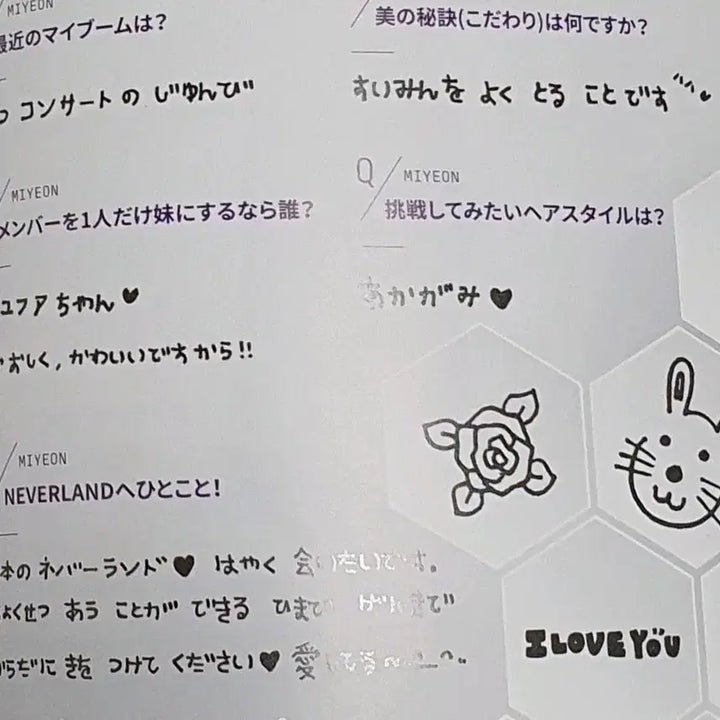 MIYEON
最近のマイブームは?
コンサートの じゅんび
MIYEON
メンバーを1人だけ妹にするなら誰?
ュファ ちゃん♥
おしく, かわいいですから!!
MIYEON
NEVERLANDへひとこと!
本の ネバーランド♥ はやく 会いたいです。
よくせつ あう ことが できる ひまで
からだに きを つけて ください♥ 愛してる
美の秘訣(こだわり)は何ですか?
すいみんを よく とる ことです
Q MIYEON
挑戦してみたいヘアスタイルは?
あかがみ♥
I LOVE YOU